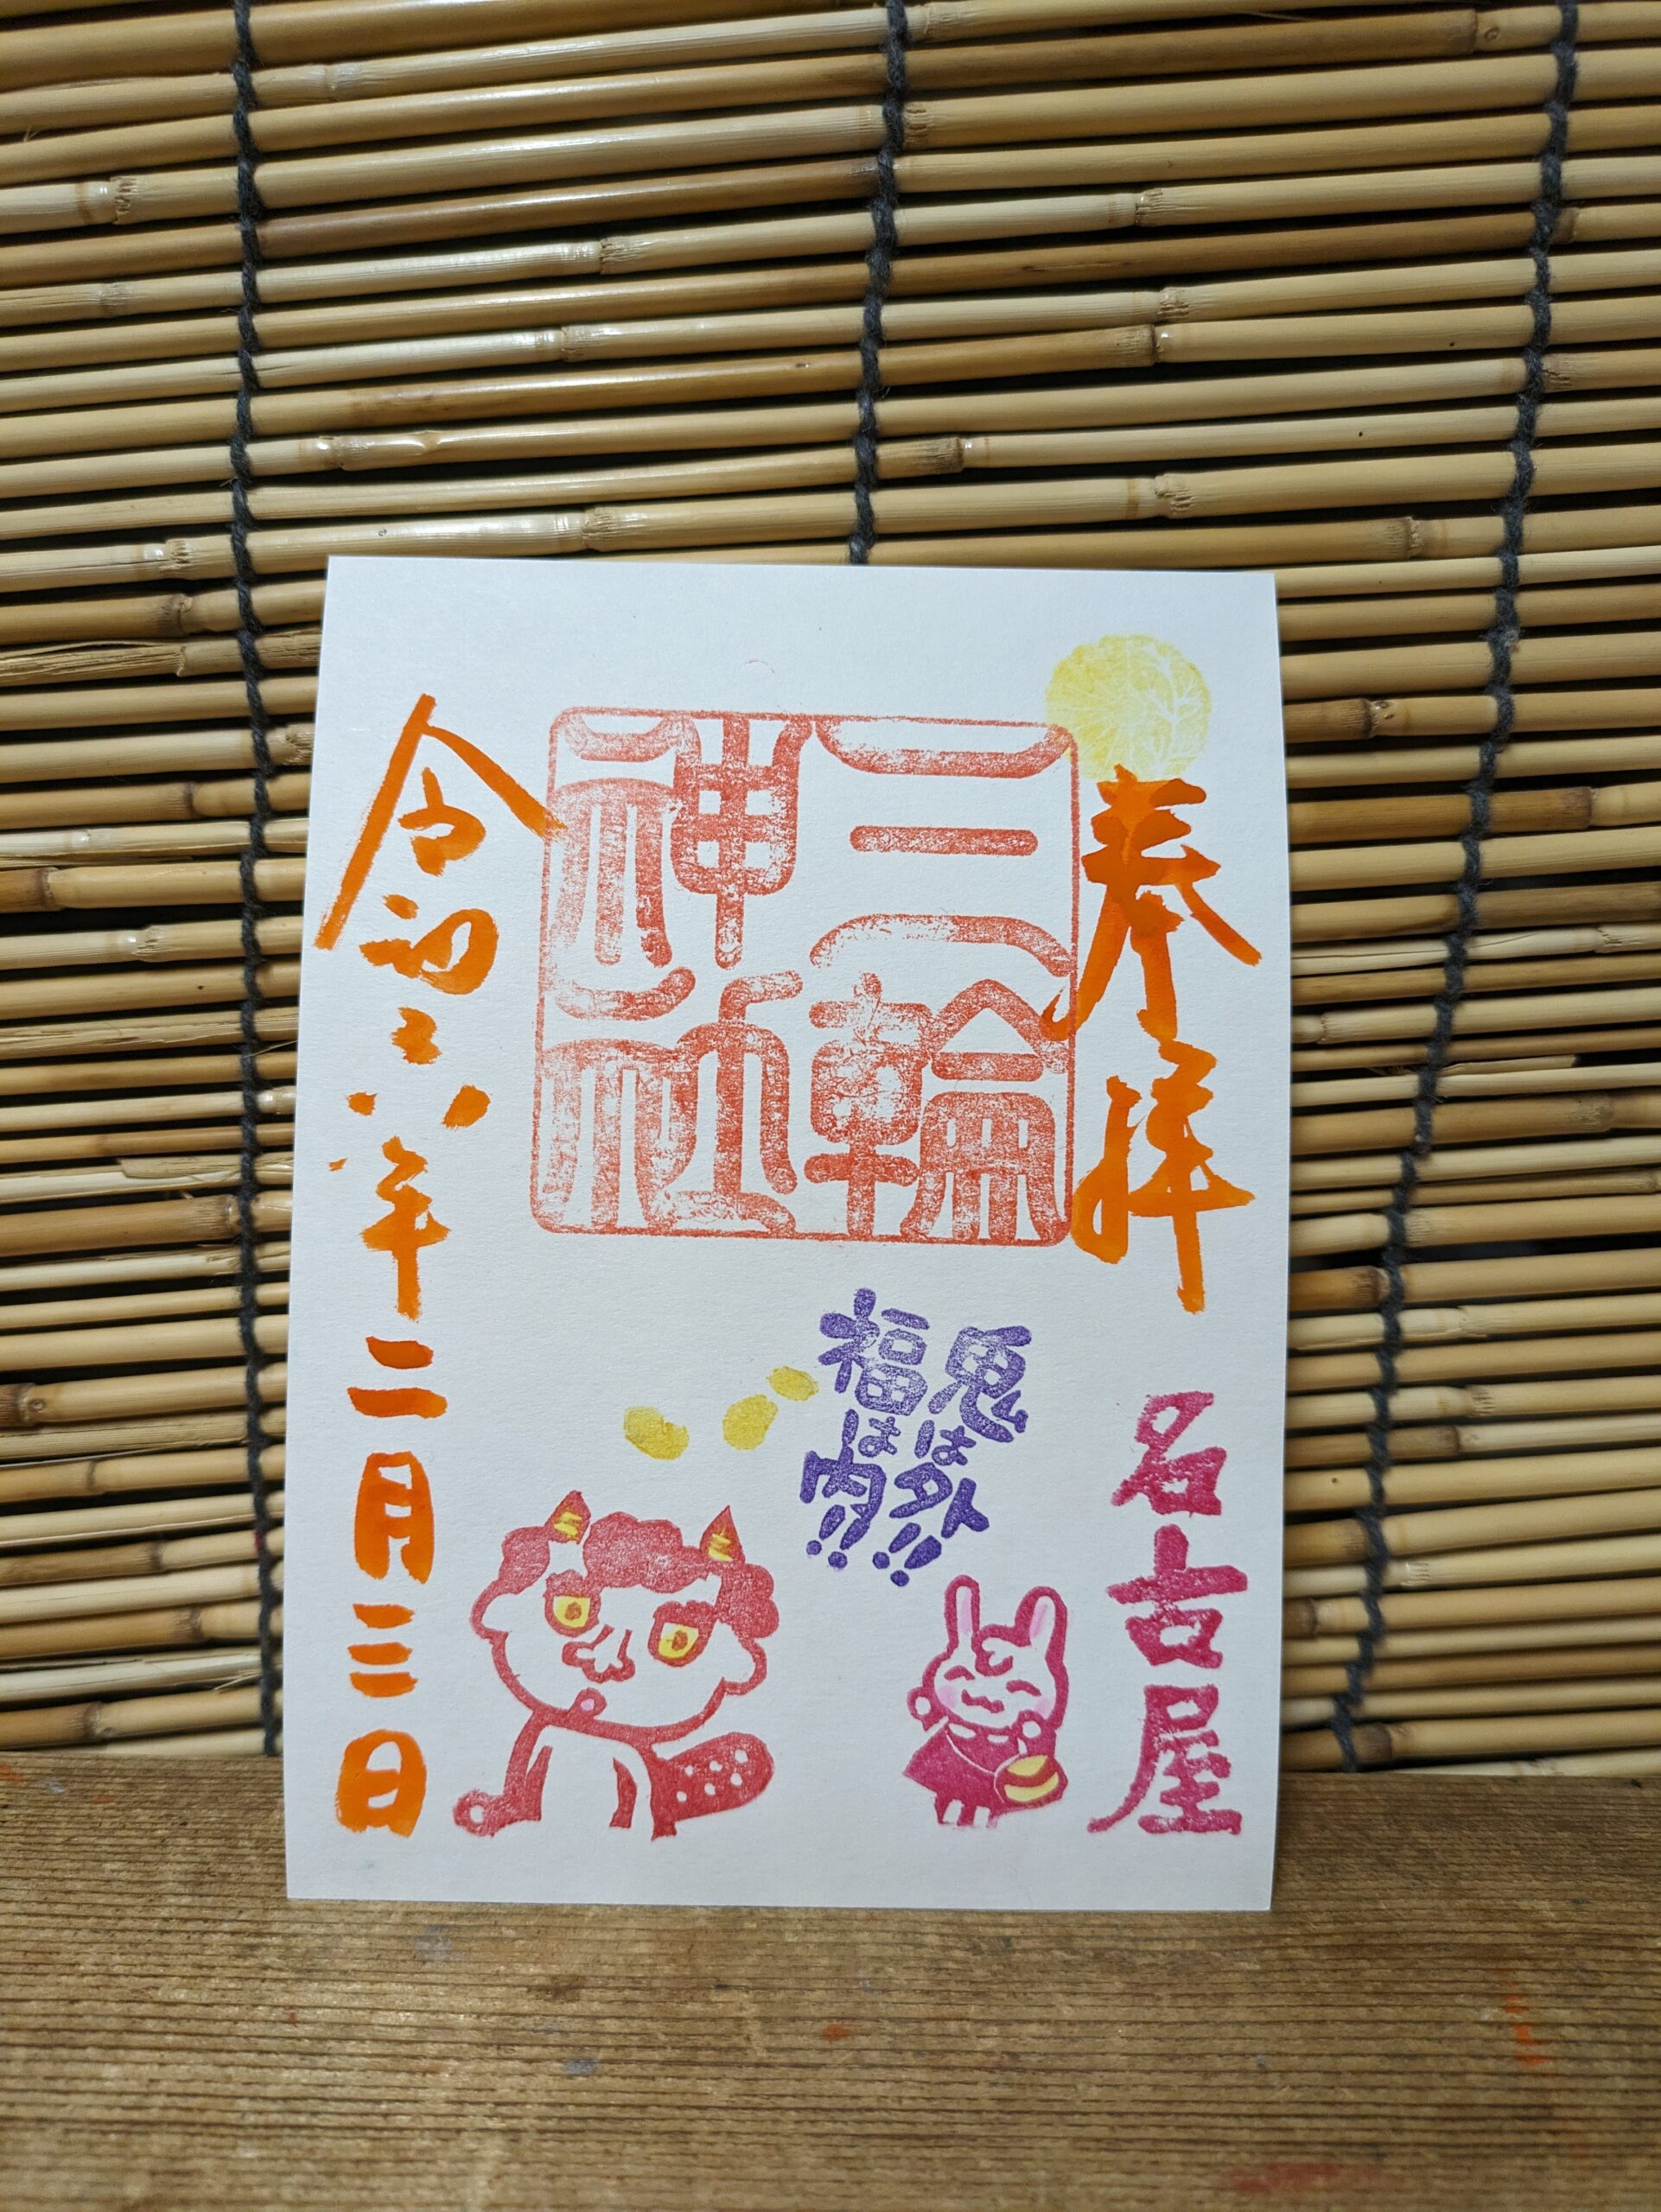 奉拝
名古屋
三輪
神社
鬼は外!!
福は内!!
令和六年二月三日